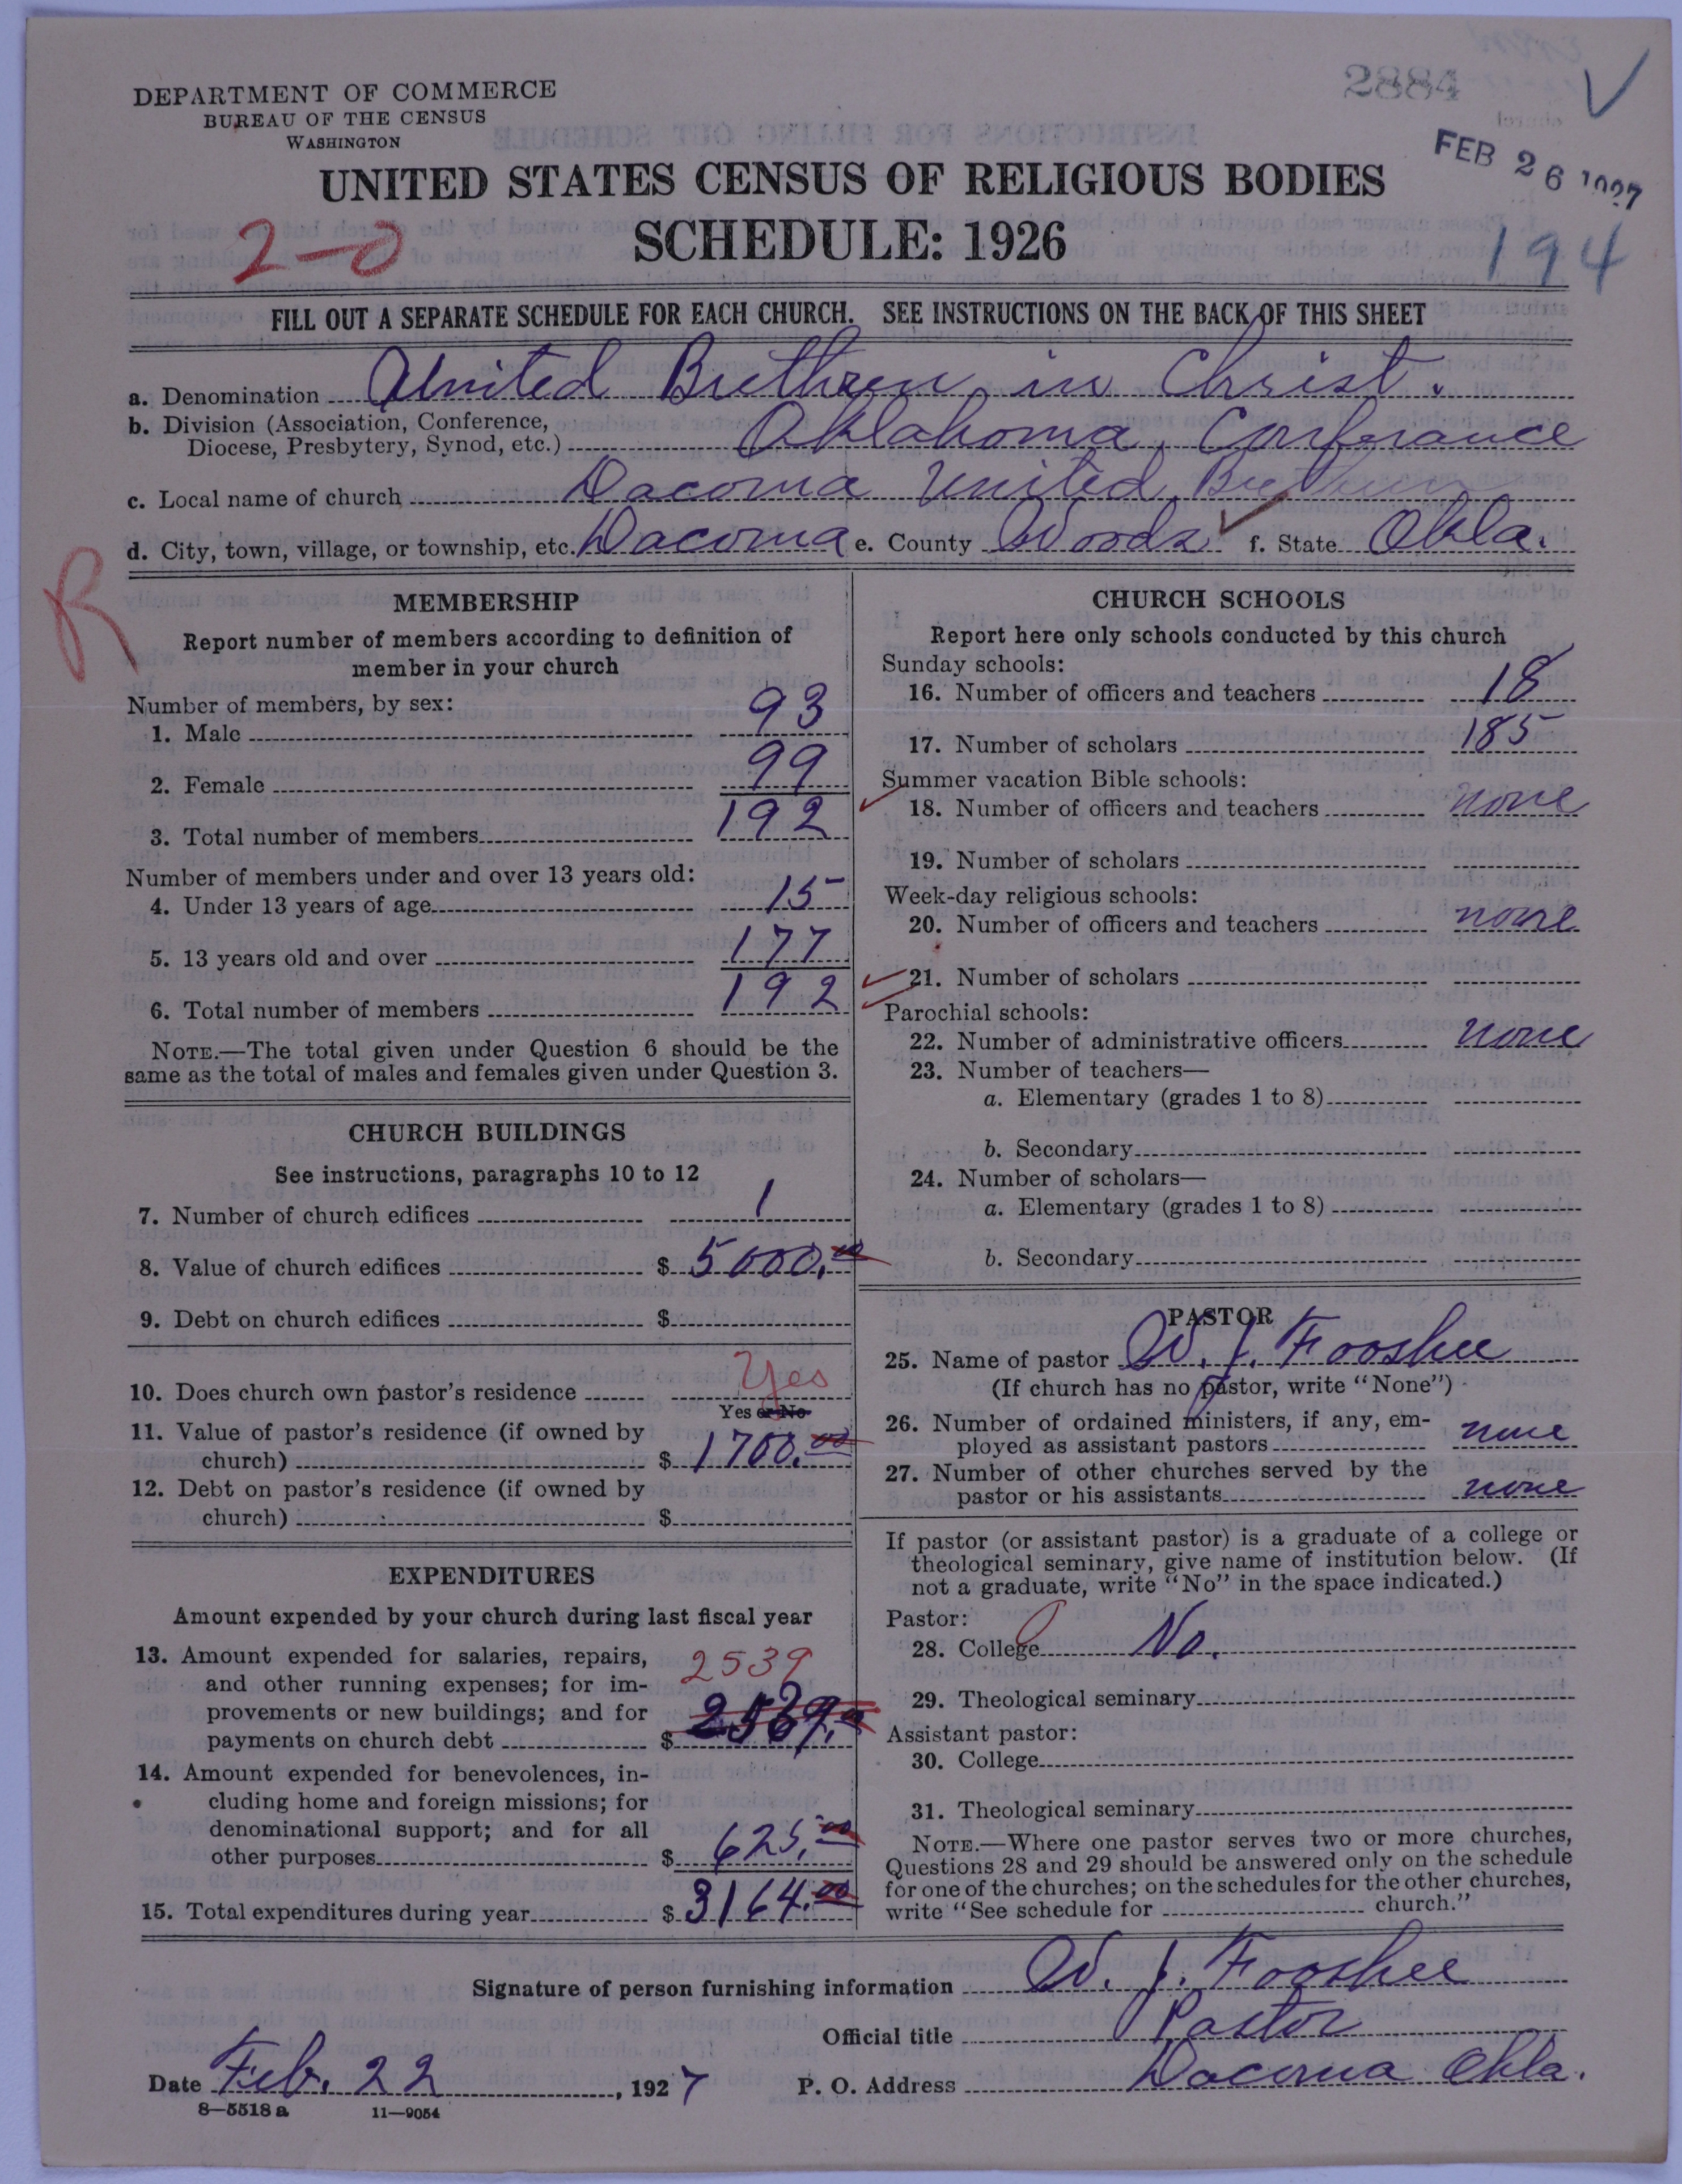 DEPARTMENT OF COMMERCE
BUREAU OF THE CENSUS
WASHINGTON
2884
FEB 26 1927
UNITED STATES CENSUS OF RELIGIOUS BODIES
SCHEDULE: 1926
2-0
194
FILL OUT A SEPARATE SCHEDULE FOR EACH CHURCH. SEE INSTRUCTIONS ON THE BACK OF THIS SHEET
a. Denomination United Brethren in Christ.
b. Division (Association, Conference,
Diocese, Presbytery, Synod, etc.) Oklahoma, Conferance
c. Local name of church Dacoma United Brethren
d. City, town, village, or township, etc. Dacoma e. County Woods f. State Okla.
R
MEMBERSHIP
Report number of members according to definition of
member in your church
Number of members, by sex:
1. Male 93
2. Female 99
3. Total number of members 192
Number of members under and over 13 years old:
4. Under 13 years of age 15
5. 13 years old and over 177
6. Total number of members 192
NOTE.—The total given under Question 6 should be the
same as the total of males and females given under Question 3.
CHURCH BUILDINGS
See instructions, paragraphs 10 to 12
7. Number of church edifices 1
8. Value of church edifices $ 5000.00
9. Debt on church edifices $
10. Does church own pastor's residence Yes
Yes or No
11. Value of pastor's residence (if owned by
church) $ 1700.00
12. Debt on pastor's residence (if owned by
church) $
EXPENDITURES
Amount expended by your church during last fiscal year
13. Amount expended for salaries, repairs,
and other running expenses; for im-
provements or new buildings; and for
payments on church debt $ 2539
2539.00
14. Amount expended for benevolences, in-
cluding home and foreign missions; for
denominational support; and for all
other purposes $ 625.00
15. Total expenditures during year $ 3164.00
CHURCH SCHOOLS
Report here only schools conducted by this church
Sunday schools:
16. Number of officers and teachers 18
17. Number of scholars 185
Summer vacation Bible schools:
18. Number of officers and teachers none
19. Number of scholars
Week-day religious schools:
20. Number of officers and teachers none
21. Number of scholars
Parochial schools:
22. Number of administrative officers none
23. Number of teachers—
a. Elementary (grades 1 to 8)
b. Secondary
24. Number of scholars—
a. Elementary (grades 1 to 8)
b. Secondary
PASTOR
25. Name of pastor W. J. Fooshee
(If church has no pastor, write "None")
26. Number of ordained ministers, if any, em-
ployed as assistant pastors none
27. Number of other churches served by the
pastor or his assistants none
If pastor (or assistant pastor) is a graduate of a college or
theological seminary, give name of institution below. (If
not a graduate, write "No" in the space indicated.)
Pastor:
28. College No.
29. Theological seminary
Assistant pastor:
30. College
31. Theological seminary
NOTE.—Where one pastor serves two or more churches,
Questions 28 and 29 should be answered only on the schedule
for one of the churches; on the schedules for the other churches,
write "See schedule for church."
Signature of person furnishing information W. J. Fooshee
Official title Pastor
Date Feb. 22, 1927 P. O. Address Dacoma Okla.
8—5518 a 11—9054